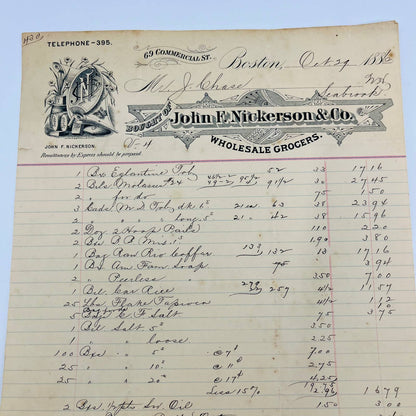 430
TELEPHONE-395.
69 COMMERCIAL ST.
Boston, Oct 29 1886
Mr J. Chase
Seabrook NH
BOUGHT OF John F. Nickerson & Co.
WHOLESALE GROCERS.
JOHN F. NICKERSON.
Remittances by Express should be prepaid.
1 Bx Eglantine Tob 52 33 17 16
2 Bbls Molasses #24 91½ 30 27 45
2 " for do 75 1 50
3 Cads M S Tob, dk. 6² 21 63 38 23 94
2 " " long 5² 21 42 38 15 96
2 Doz 2 Hoop Pails 1 10 2 20
2 Bxs P.P. 1 90 3 80
1 Bag Ran Rio Coffee 133 1 132 13 17 16
1 Bx Am Fam Soap 75 3 94
2 " Peerless " 3 50 7 00
1 Bbl Car Rice 279 257 4½ 11 57
25 Lbs Flake Tapioca 4½ 1 12
5 C F Salt 75 3 75
1 Bbl Salt 5² 3 50
1 " " loose 2 25
100 Bxs " 5² @ 7¢ 7.00
25 " " 10² @ 11¢ 2.75
25 " " 20² @ 17¢ 4.25
19.75
Less 15% 2.96 16 79
2 Bxs Sw. Oil 1 50 3 00